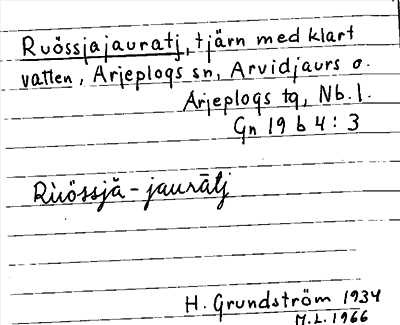 Ruössjajauratj, tjärn med klart
vatten, Arjeplogs sn, Arvidjaurs o.
Arjeplogs tg, Nb. l.
Gn 19 b 4 : 3
Rùössjǎ - jaurātj
H. Grundström 1934
M.L. 1966